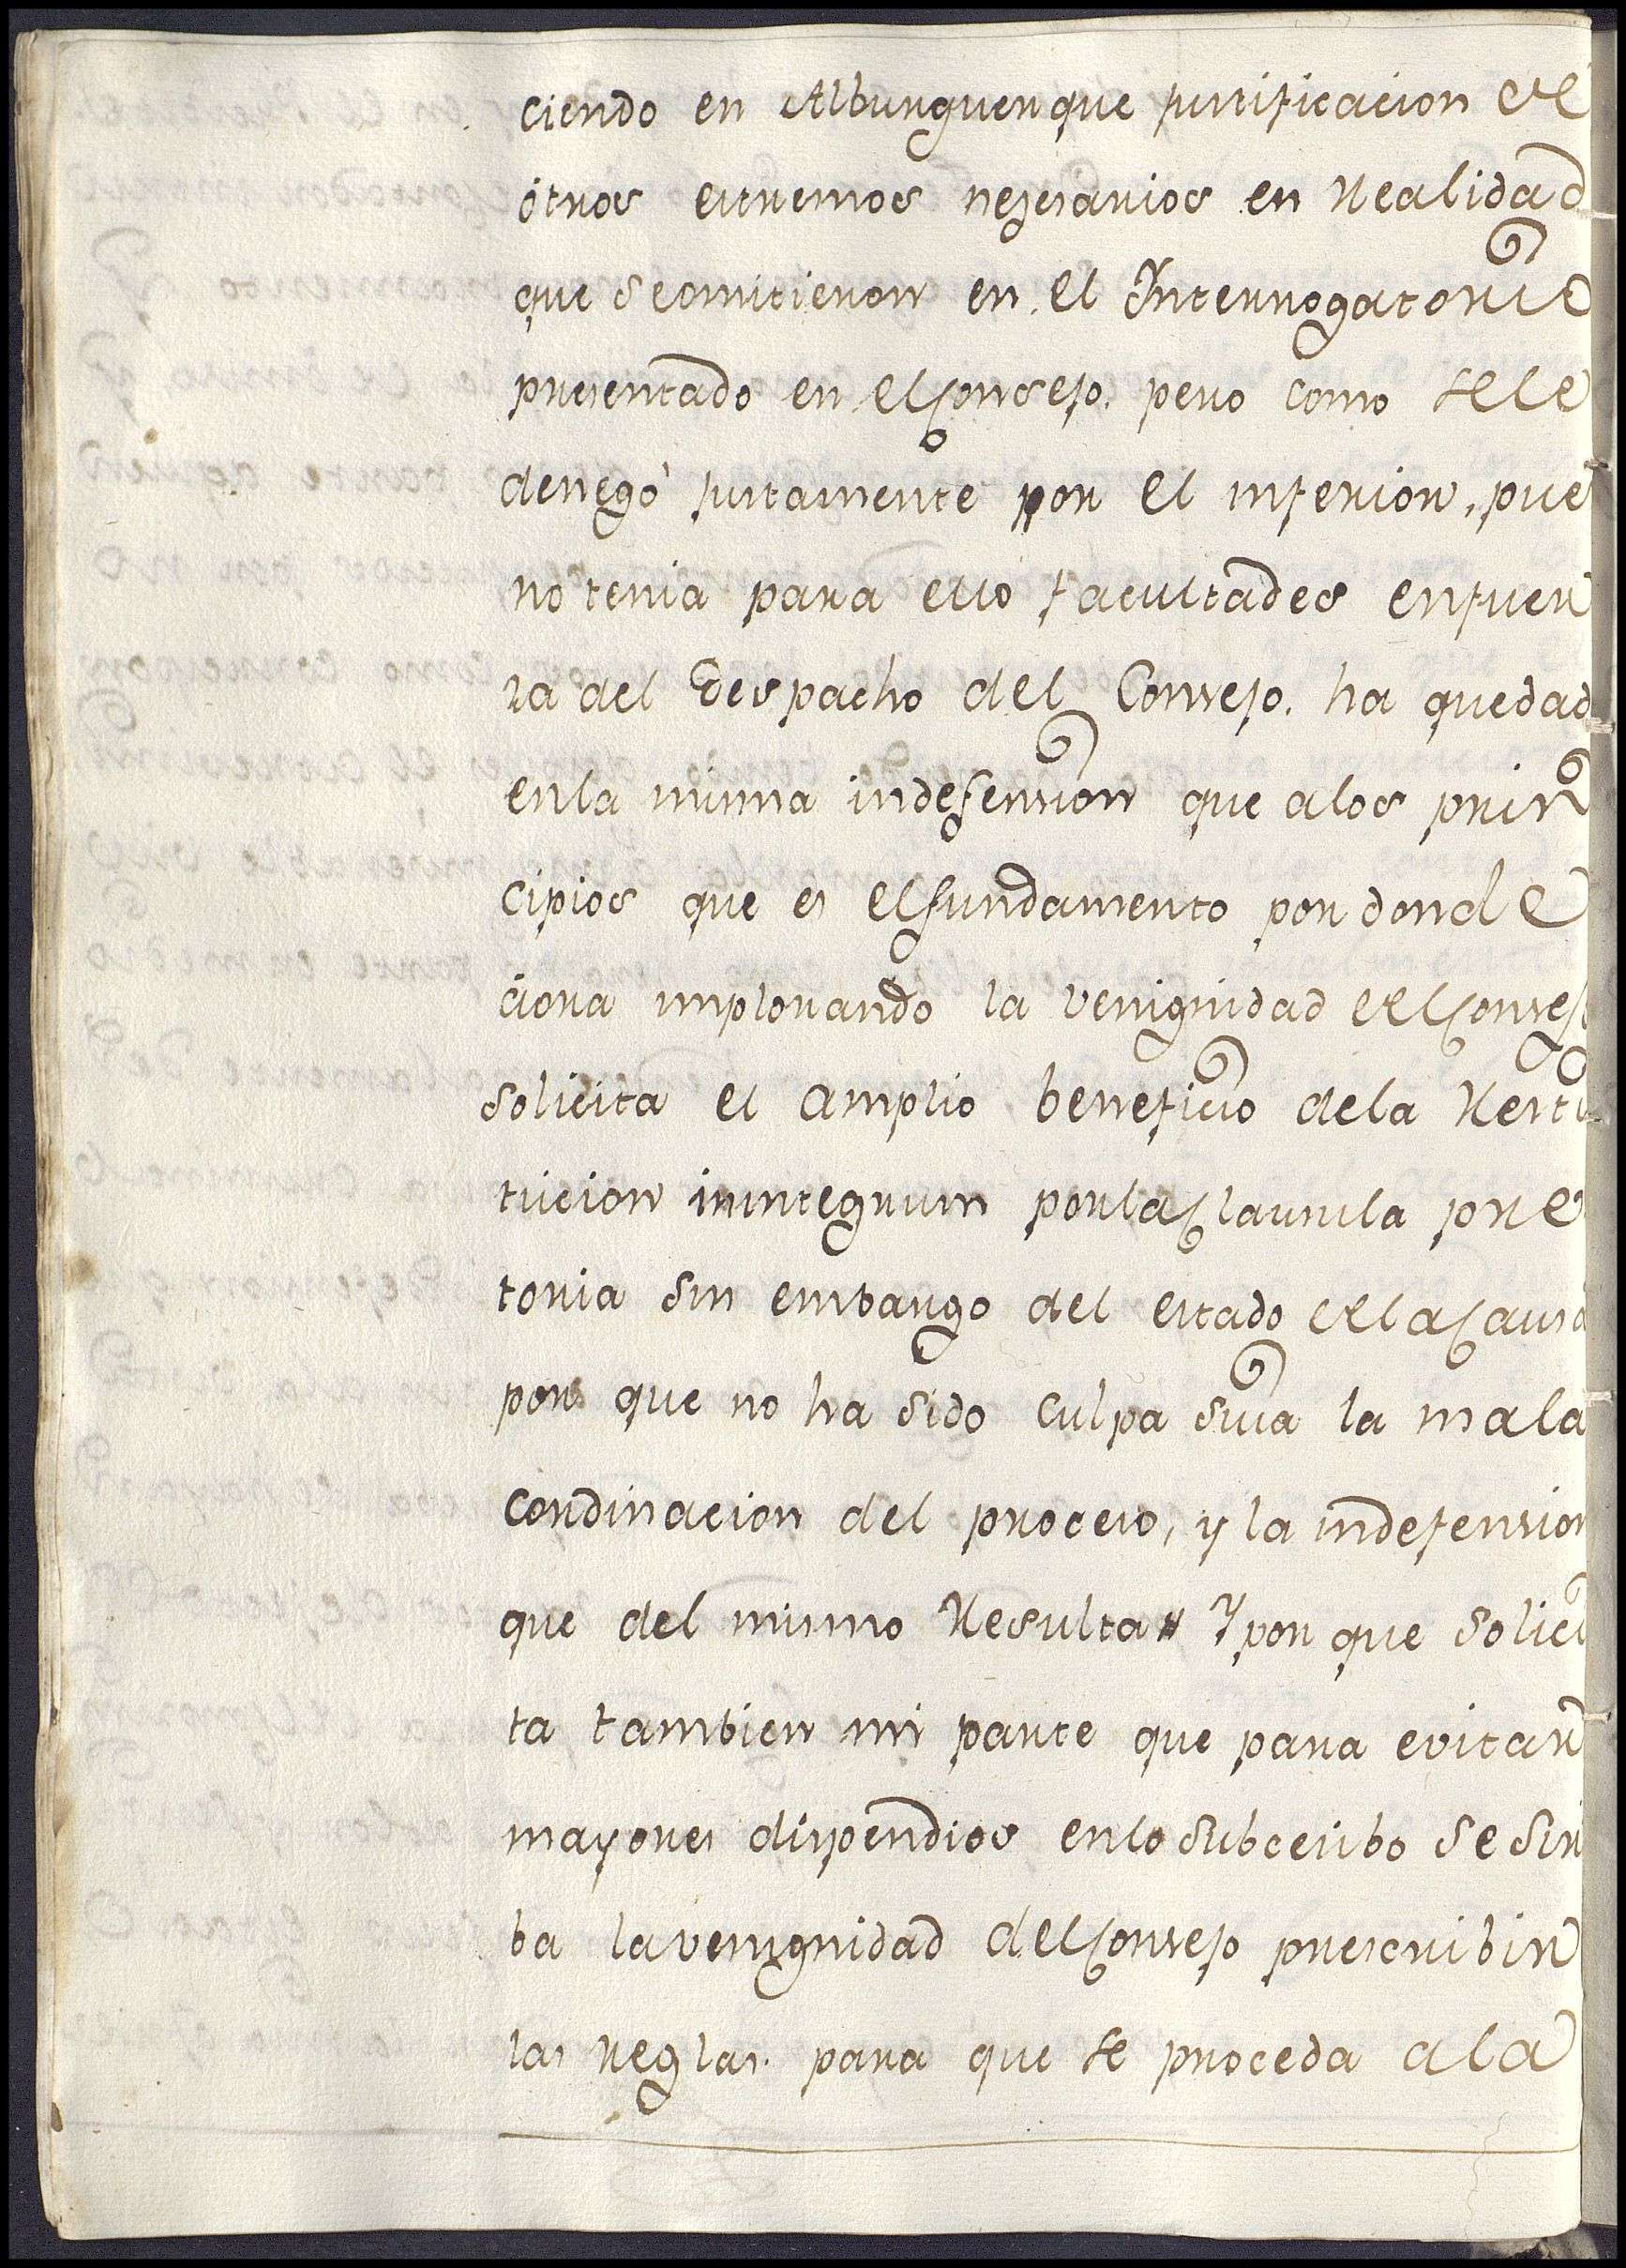 ciendo en Alburguerque justificacion de
otros estremos nezesarios en Realidad
que se omitieron en el Interrogatorio
presentado en el Consejo. pero como se le
denegó justamente por el inferior, pue
no tenia para ello facultades en fuer
za del Despacho del Consejo. ha quedad
en la misma indefension que a los prin
cipios que es el fundamento por donde
aora implorando la venignidad del Consejo
solicita el amplio beneficio de la Resti
tucion inintegrum por la Clausula pre
toria sin embargo del estado de la Causa
por que no ha sido culpa suia la mala
cordinacion del proceso, y la indefension
que del mismo Resulta # Y por que solici
ta tambien mi parte que para evitar
mayores dispendios en lo subcesibo se sir
ba la venignidad del Consejo prescribir
las reglas. para que se proceda a la